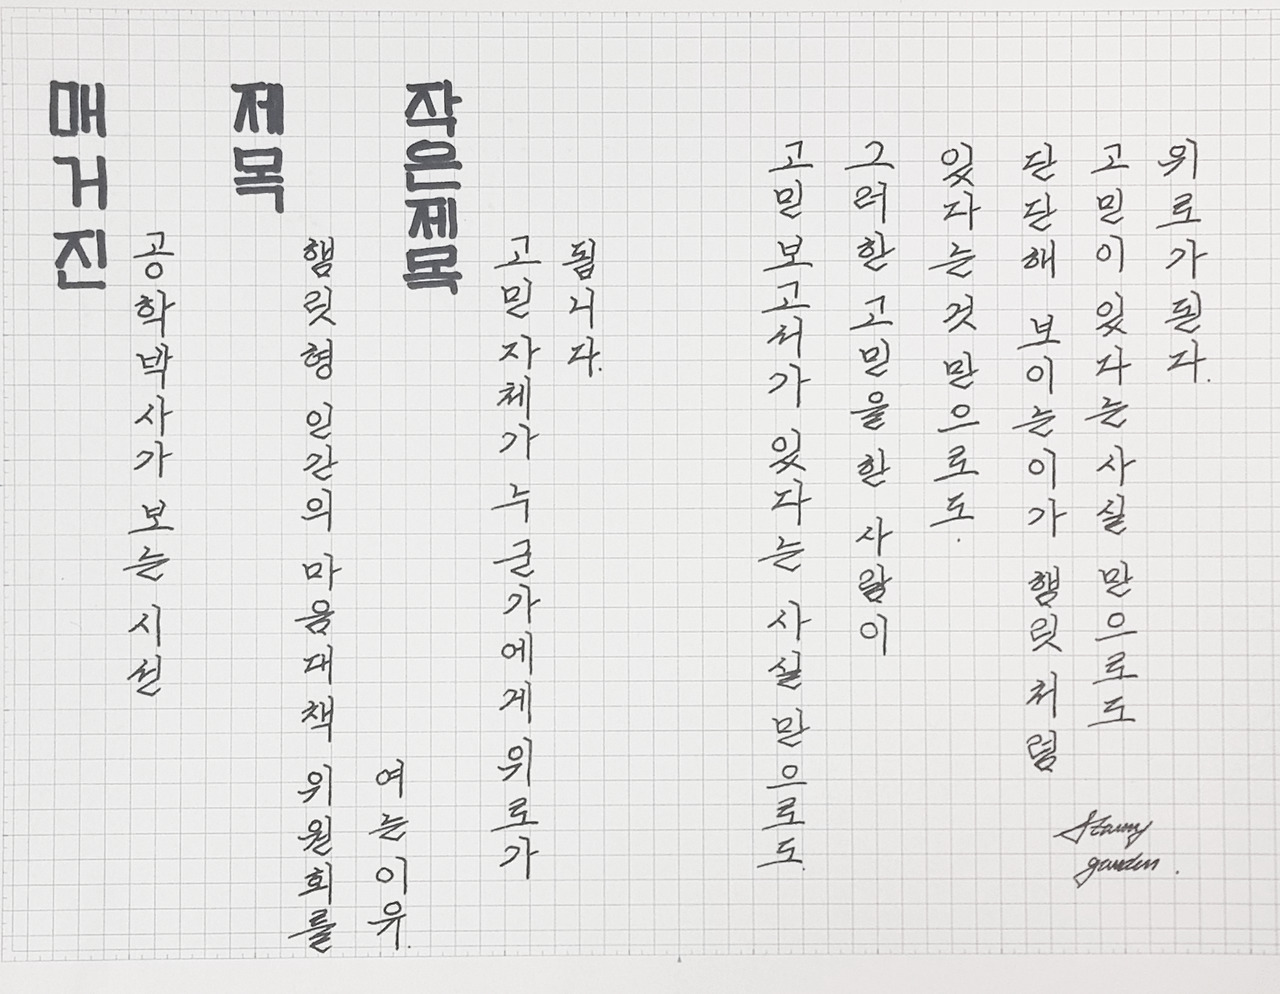 매거진
공학박사가 보는 시선
제목
햄릿형 인간의 마음대책 위원회를
여는 이유.
작은제목
고민 자체가 누군가에게 위로가
됩니다.
고민 보고서가 있다는 사실 만으로도.
그러한 고민을 한 사람이
있다는 것 만으로도.
단단해 보이는 이가 햄릿 처럼
고민이 있다는 사실 만으로도
위로가 된다.
Starry
garden.